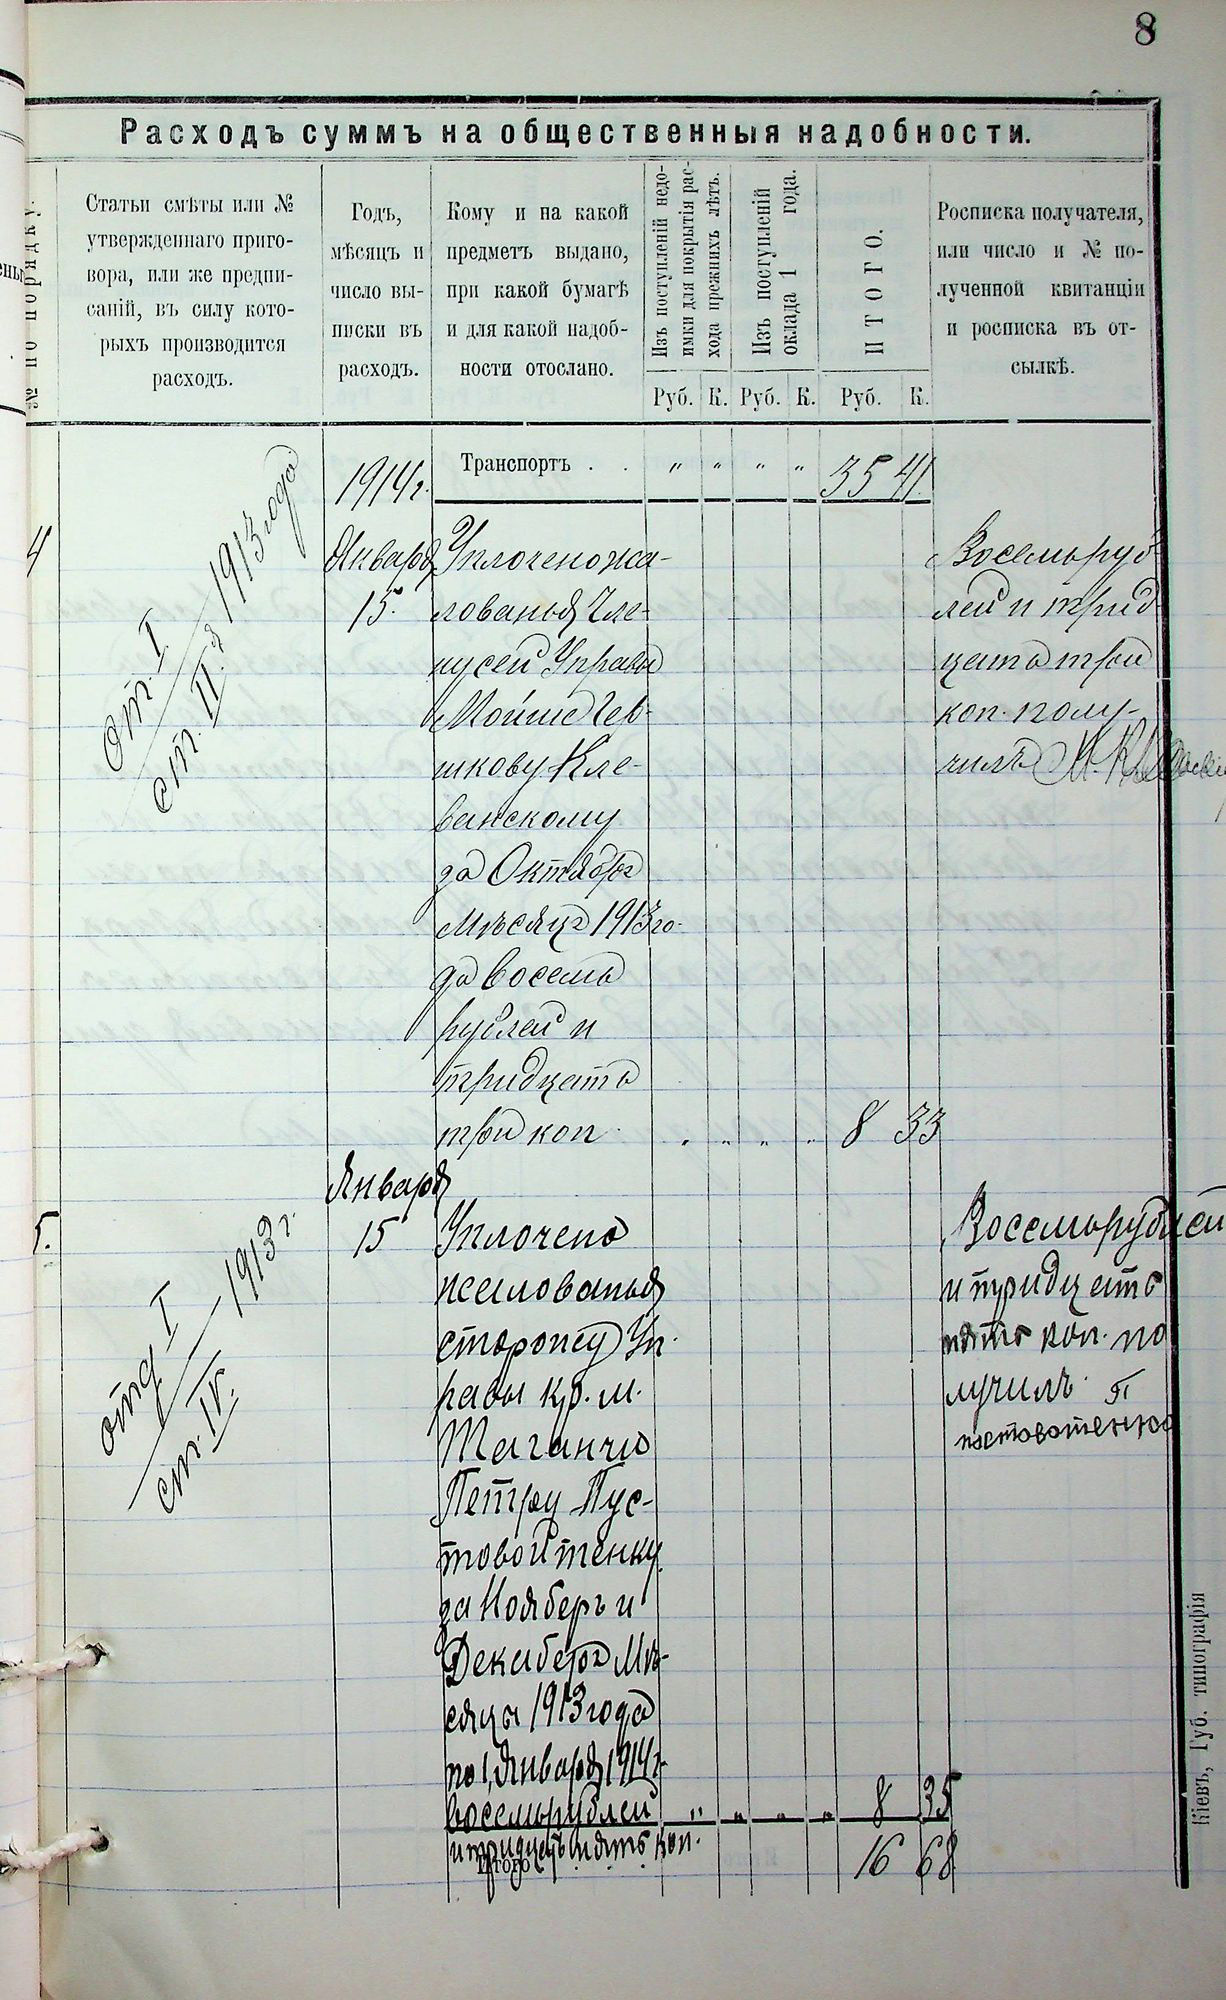 8
Расходъ суммъ на общественныя надобности.
№ по порядку.
Статьи смѣты или №
утвержденнаго приго-
вора, или же предпи-
саній, въ силу кото-
рыхъ производится
расходъ.
Годъ,
мѣсяцъ и
число вы-
писки въ
расходъ.
Кому и на какой
предметъ выдано,
при какой бумагѣ
и для какой надоб-
ности отослано.
Изъ поступленій недо-
имки для покрытія рас-
хода прежнихъ лѣтъ.
Изъ поступленій
оклада 1 года.
ИТОГО.
Росписка получателя,
или число и № по-
лученной квитанціи
и росписка въ от-
сылкѣ.
Руб. К. Руб. К. Руб. К.
1914г.
Транспортъ . . " " " " 35 41.
4
от. I
ст. II. 1913 года
Января
15.
Уплочено жа-
лованья Чле-
Управы
Мойше Гев-
шкову Кле-
ванскому
за Октябрь
мѣсяцъ 1913 го-
да восемь
рублей и
тридцать
три коп. " " " " 8 33
Восемь руб-
лей и трид-
цать три
коп. полу-
чилъ М.
5.
отд I
ст. IV. 1913 г.
Января
15
Уплочено
жалованья
сторожу Уп-
равы кр. м.
Таганчи
Петру Пус-
товойтенку
за Ноябрь и
Декаберь Мѣ-
сяцы 1913 года
по 1, Января 1914г.
восемь рублей " " " " 8 35
и тридцать пять коп.
Итого . . . . 16 68
Восемь рублей
и тридцать
пять коп. по
лучилъ П
Кіевъ, Губ. типографія